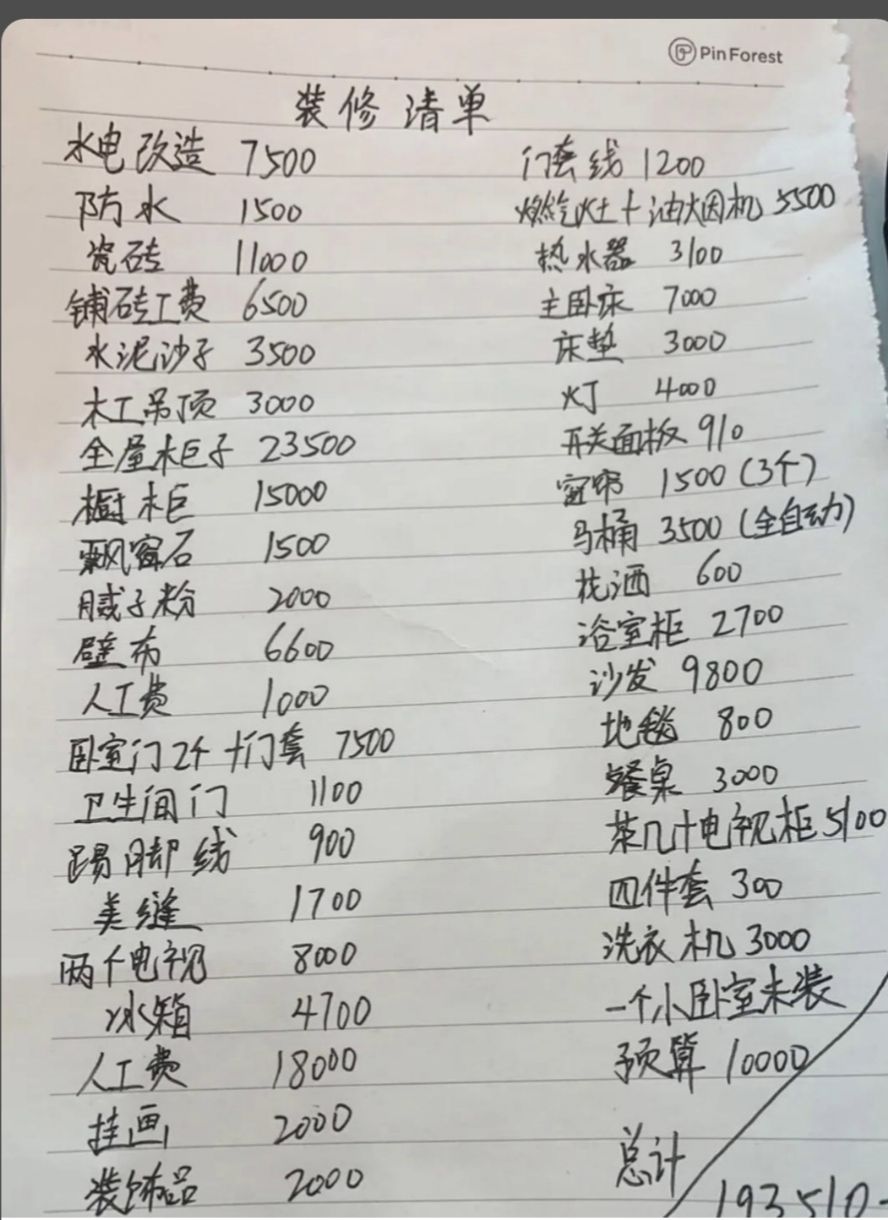 PinForest
装修清单
水电改造 7500
防水 1500
瓷砖 11000
铺砖工费 6500
水泥沙子 3500
木工吊顶 3000
全屋柜子 23500
橱柜 15000
飘窗石 1500
腻子粉 2000
壁布 6600
人工费 1000
卧室门2个+门套 7500
卫生间门 1100
踢脚线 900
美缝 1700
两个电视 8000
冰箱 4700
人工费 18000
挂画 2000
装饰品 2000
门套线 1200
燃气灶+油烟机 5500
热水器 3100
主卧床 7000
床垫 3000
灯 4000
开关面板 910
窗帘 1500(3个)
马桶 3500(全自动)
花洒 600
浴室柜 2700
沙发 9800
地毯 800
餐桌 3000
茶几+电视柜 5100
四件套 300
洗衣机 3000
一个小卧室未装
预算 10000
总计
193510